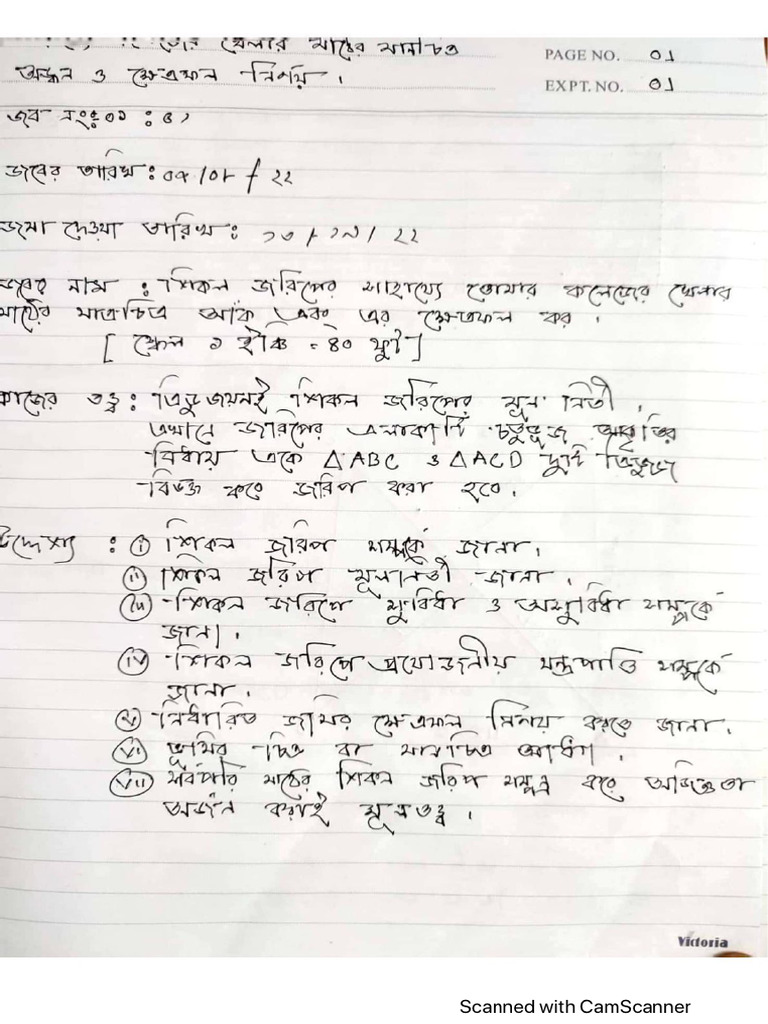 খেলার মাঠের মানচিত্র
PAGE NO. 01
অঙ্কন ও ক্ষেত্রফল নির্ণয়।
EXPT. NO. 01
জব নংঃ০১ : ৫১
জবের তারিখ : ০৯/০৮/২২
জমা দেওয়া তারিখ : ১৩/১৯/২২
জবের নাম : শিকল জরিপের সাহায্যে তোমার কলেজের খেলার
মাঠের মানচিত্র আঁক এবং এর ক্ষেতফল কর।
[ স্কেল ১ ইঞ্চি = ৪০ ফুট ]
কাজের তত্ত্ব : ত্রিভুজায়নই শিকল জরিপের মূল নিতী।
এখানে জরিপের এলাকাটি চতুভুজ আকৃতির
বিধায় একে ΔABC ও ΔACD দুটি ত্রিভুজে
বিভক্ত করে জরিপ করা হবে।
উদ্দেশ্য : (i) শিকল জরিপ সম্পর্কে জানা।
(ii) শিকল জরিপ মূলনিতী জানা।
(iii) শিকল জরিপে সুবিধা ও অসুবিধা সম্পর্কে
জানা।
(iv) শিকল জরিপে প্রয়োজনীয় যন্ত্রপাতি সম্পর্কে
জানা।
(v) নির্ধারিত জমির ক্ষেত্রফল নির্ণয় করতে জানা।
(vi) ভূমির চিত্র বা মানচিত্র আঁকা।
(vii) সর্বপরি মাঠের শিকল জরিপ সম্পন্ন করে অভিজ্ঞতা
অর্জন করাই মূলতত্ত্ব।
Victoria
Scanned with CamScanner